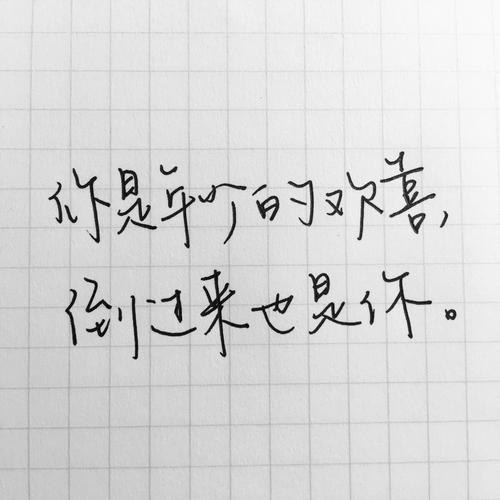 你是年少的欢喜,
倒过来也是你。